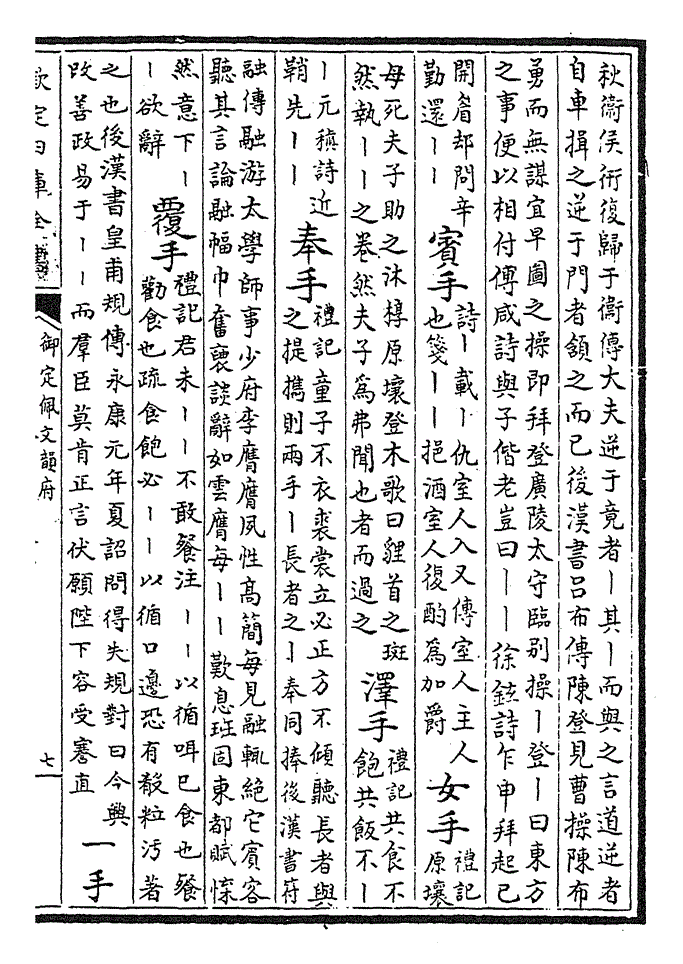 秋衞侯衎復歸于衞傳大夫逆于竟者丨其丨而與之言道逆者
自車揖之逆于門者頷之而已後漢書呂布傳陳登見曹操陳布
勇而無謀宜早圖之操即拜登廣陵太守臨别操丨登丨曰東方
之事便以相付傅咸詩與子偕老豈曰丨丨徐鉉詩乍申拜起已
開眉却問辛
勤還丨丨
賓手
詩丨載丨仇室人入又傳室人主人
也箋丨丨挹酒室人復酌爲加爵
女手
禮記
原壤
母死夫子助之沐椁原壤登木歌曰貍首之斑
然執丨丨之卷然夫子爲弗聞也者而過之
澤手
禮記共食不
飽共飯不丨
丨元稹詩近
鞘先丨丨
奉手
禮記童子不衣裘裳立必正方不傾聽長者與
之提攜則兩手丨長者之丨奉同捧後漢書符
融傳融游太學師事少府李膺膺夙性高簡每見融輒絕它賓客
聽其言論融幅巾奮褎談辭如雲膺每丨丨歎息班固東都賦慄
然意下丨
丨欲辭
覆手
禮記君未丨丨不敢餐注丨丨以循咡已食也餐
勸食也疏食飽必丨丨以循口邊恐有殽粒汚著
之也後漢書皇甫規傳永康元年夏詔問得失規對曰今興
改善政易于丨丨而羣臣莫肯正言伏願陛下容受謇直
一手
欽定四庫全書
御定佩文韻府
七